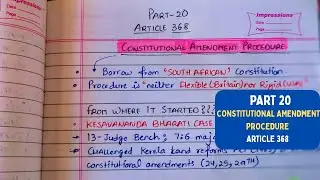 Impressions
Date
Page
Impressions
PART-20
ARTICLE 368
CONSTITUTIONAL AMENDMENT PROCEDURE
• Borrow from "SOUTH AFRICAN" constitution.
• Procedure is "neither Flexible (Britain) nor Rigid (USA)
FROM WHERE IT STARTED ???
• KESAVANANDA BHARATI CASE
• 13-Judge Bench; 7:6 major
• Challenged Kerala land reforms
constitutional amendments (24, 25, 29TH)
PART 20
CONSTITUTIONAL AMENDMENT
PROCEDURE
ARTICLE 368